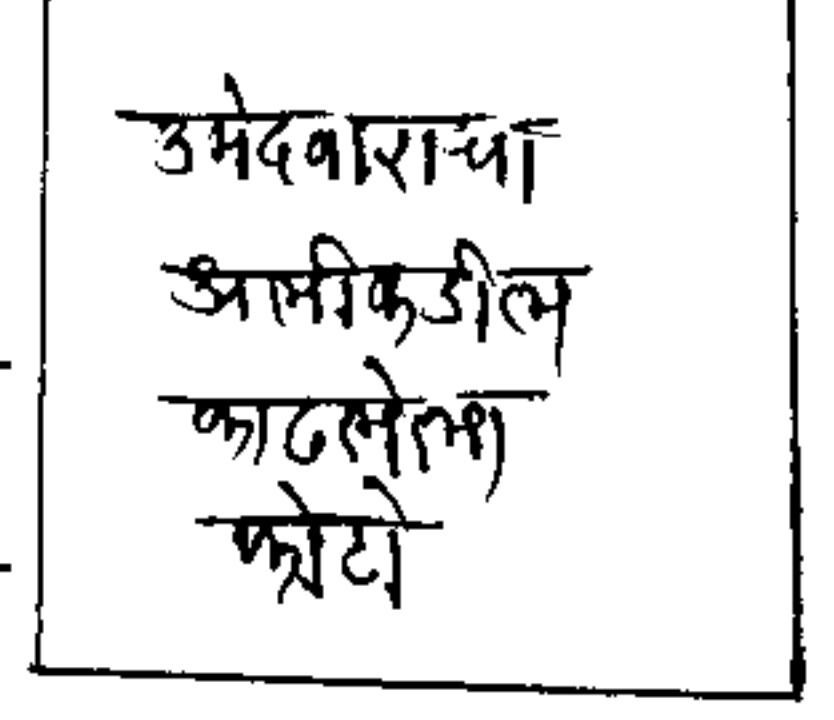 उमेदवाराचा
अलीकडील
काढलेला
फोटो